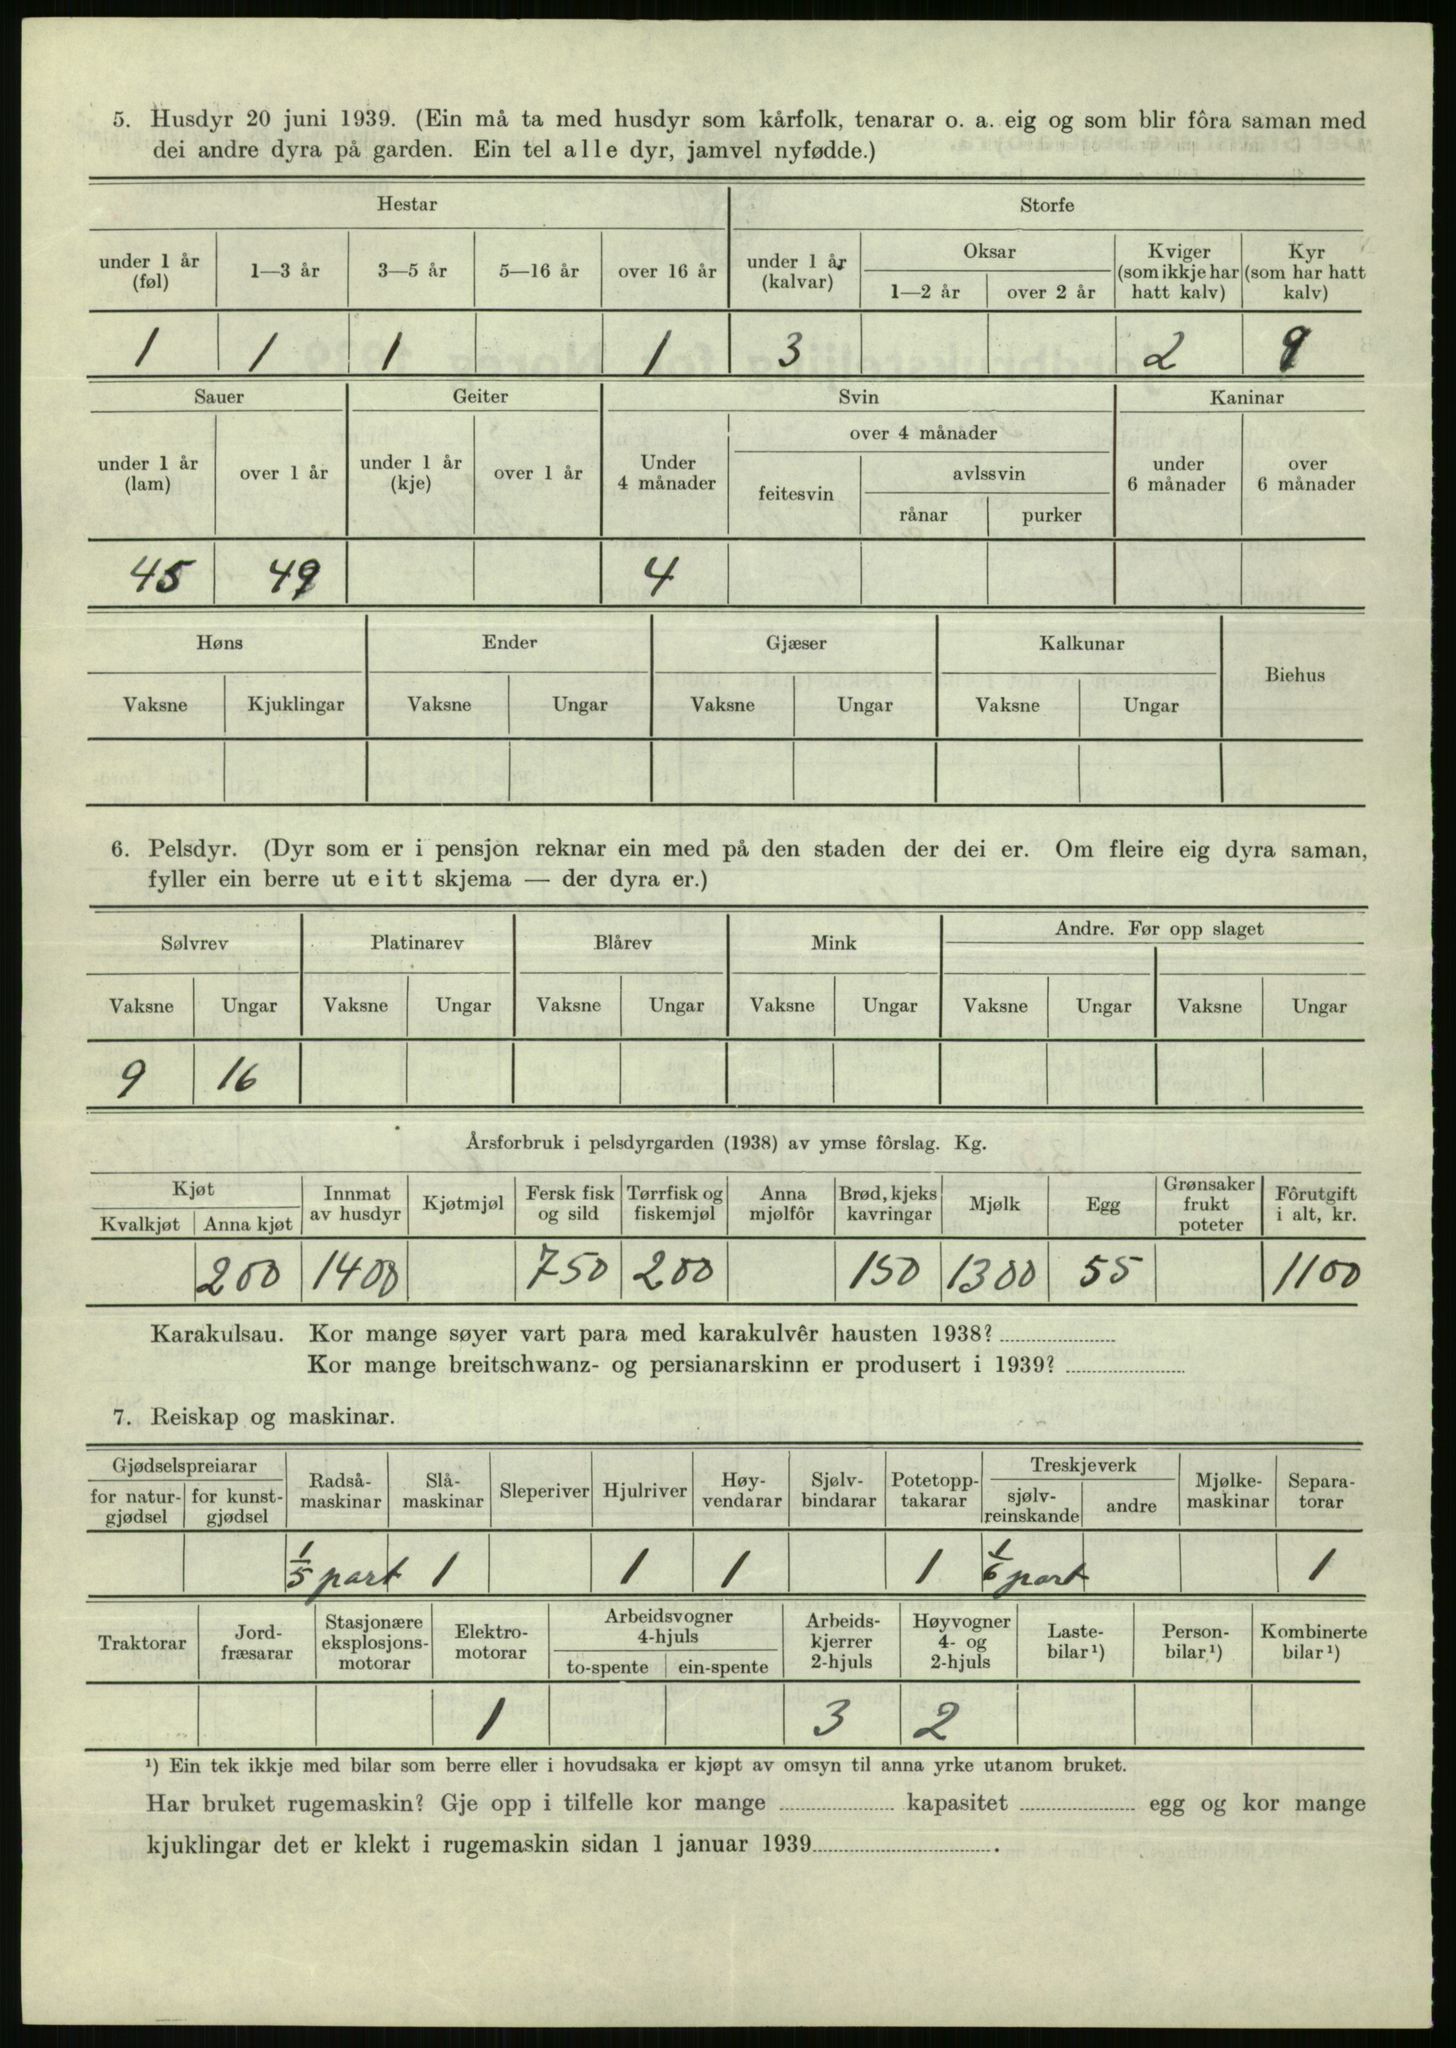 5. Husdyr 20 juni 1939. (Ein må ta med husdyr som kårfolk, tenarar o. a. eig og som blir fôra saman med
dei andre dyra på garden. Ein tel alle dyr, jamvel nyfødde.)
Hestar Storfe
under 1 år (føl) 1—3 år 3—5 år 5—16 år over 16 år under 1 år (kalvar) Oksar 1—2 år over 2 år Kviger (som ikkje har hatt kalv) Kyr (som har hatt kalv)
1 1 1 1 3 2 9
Sauer Geiter Svin Kaninar
under 1 år (lam) over 1 år under 1 år (kje) over 1 år Under 4 månader over 4 månader feitesvin avlssvin rånar purker under 6 månader over 6 månader
45 49 4
Høns Ender Gjæser Kalkunar Biehus
Vaksne Kjuklingar Vaksne Ungar Vaksne Ungar Vaksne Ungar
6. Pelsdyr. (Dyr som er i pensjon reknar ein med på den staden der dei er. Om fleire eig dyra saman,
fyller ein berre ut eitt skjema — der dyra er.)
Sølvrev Platinarev Blårev Mink Andre. Før opp slaget
Vaksne Ungar Vaksne Ungar Vaksne Ungar Vaksne Ungar Vaksne Ungar Vaksne Ungar
9 16
Årsforbruk i pelsdyrgarden (1938) av ymse fôrslag. Kg.
Kjøt Kvalkjøt Anna kjøt Innmat av husdyr Kjøtmjøl Fersk fisk og sild Tørrfisk og fiskemjøl Anna mjølfôr Brød, kjeks kavringar Mjølk Egg Grønsaker frukt poteter Fôrutgift i alt, kr.
200 1400 750 200 150 1300 55 1100
Karakulsau. Kor mange søyer vart para med karakulvêr hausten 1938?
Kor mange breitschwanz- og persianarskinn er produsert i 1939?
7. Reiskap og maskinar.
Gjødselspreiarar for natur-gjødsel for kunst-gjødsel Radså-maskinar Slå-maskinar Sleperiver Hjulriver Høy-vendarar Sjølv-bindarar Potetopp-takarar Treskjeverk sjølv-reinskande andre Mjølke-maskinar Separa-torar
1/5 part 1 1 1 1 1/6 part 1
Traktorar Jord-fræsarar Stasjonære eksplosjons-motorar Elektro-motorar Arbeidsvogner 4-hjuls to-spente ein-spente Arbeids-kjerrer 2-hjuls Høyvogner 4- og 2-hjuls Laste-bilar¹) Person-bilar¹) Kombinerte bilar¹)
1 3 2
¹) Ein tek ikkje med bilar som berre eller i hovudsaka er kjøpt av omsyn til anna yrke utanom bruket.
Har bruket rugemaskin? Gje opp i tilfelle kor mange kapasitet egg og kor mange
kjuklingar det er klekt i rugemaskin sidan 1 januar 1939.